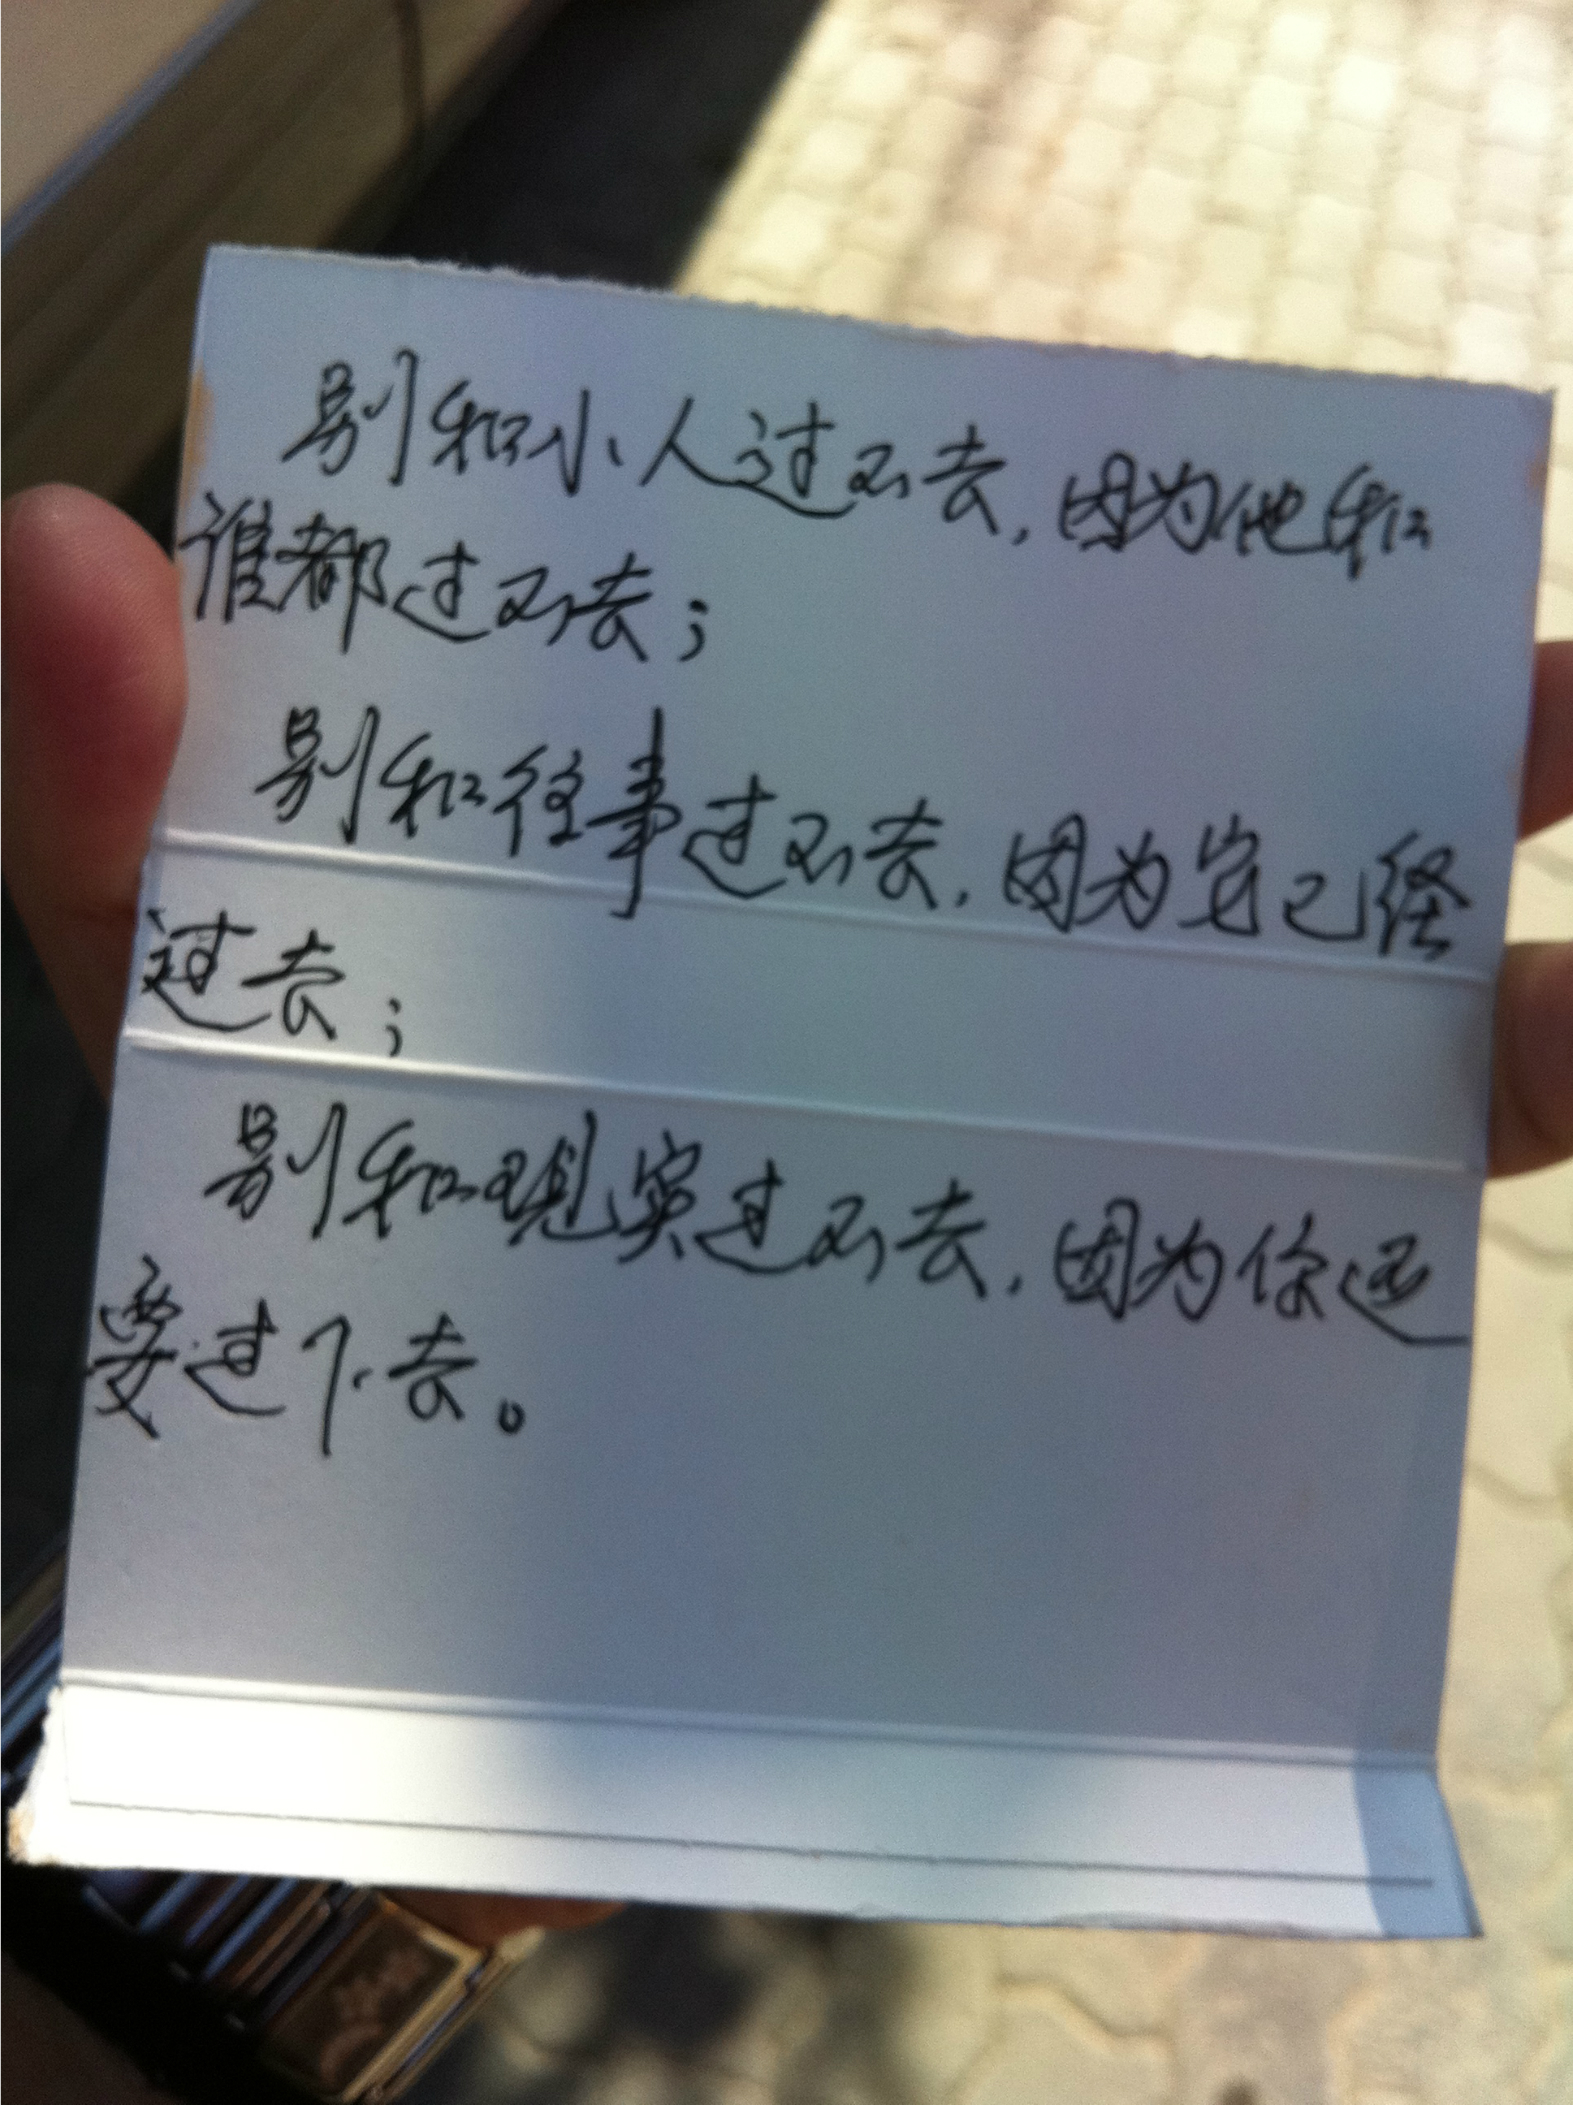 别和小人过不去,因为他和
谁都过不去;
别和往事过不去,因为它已经
过去;
别和现实过不去,因为你还
要过下去。